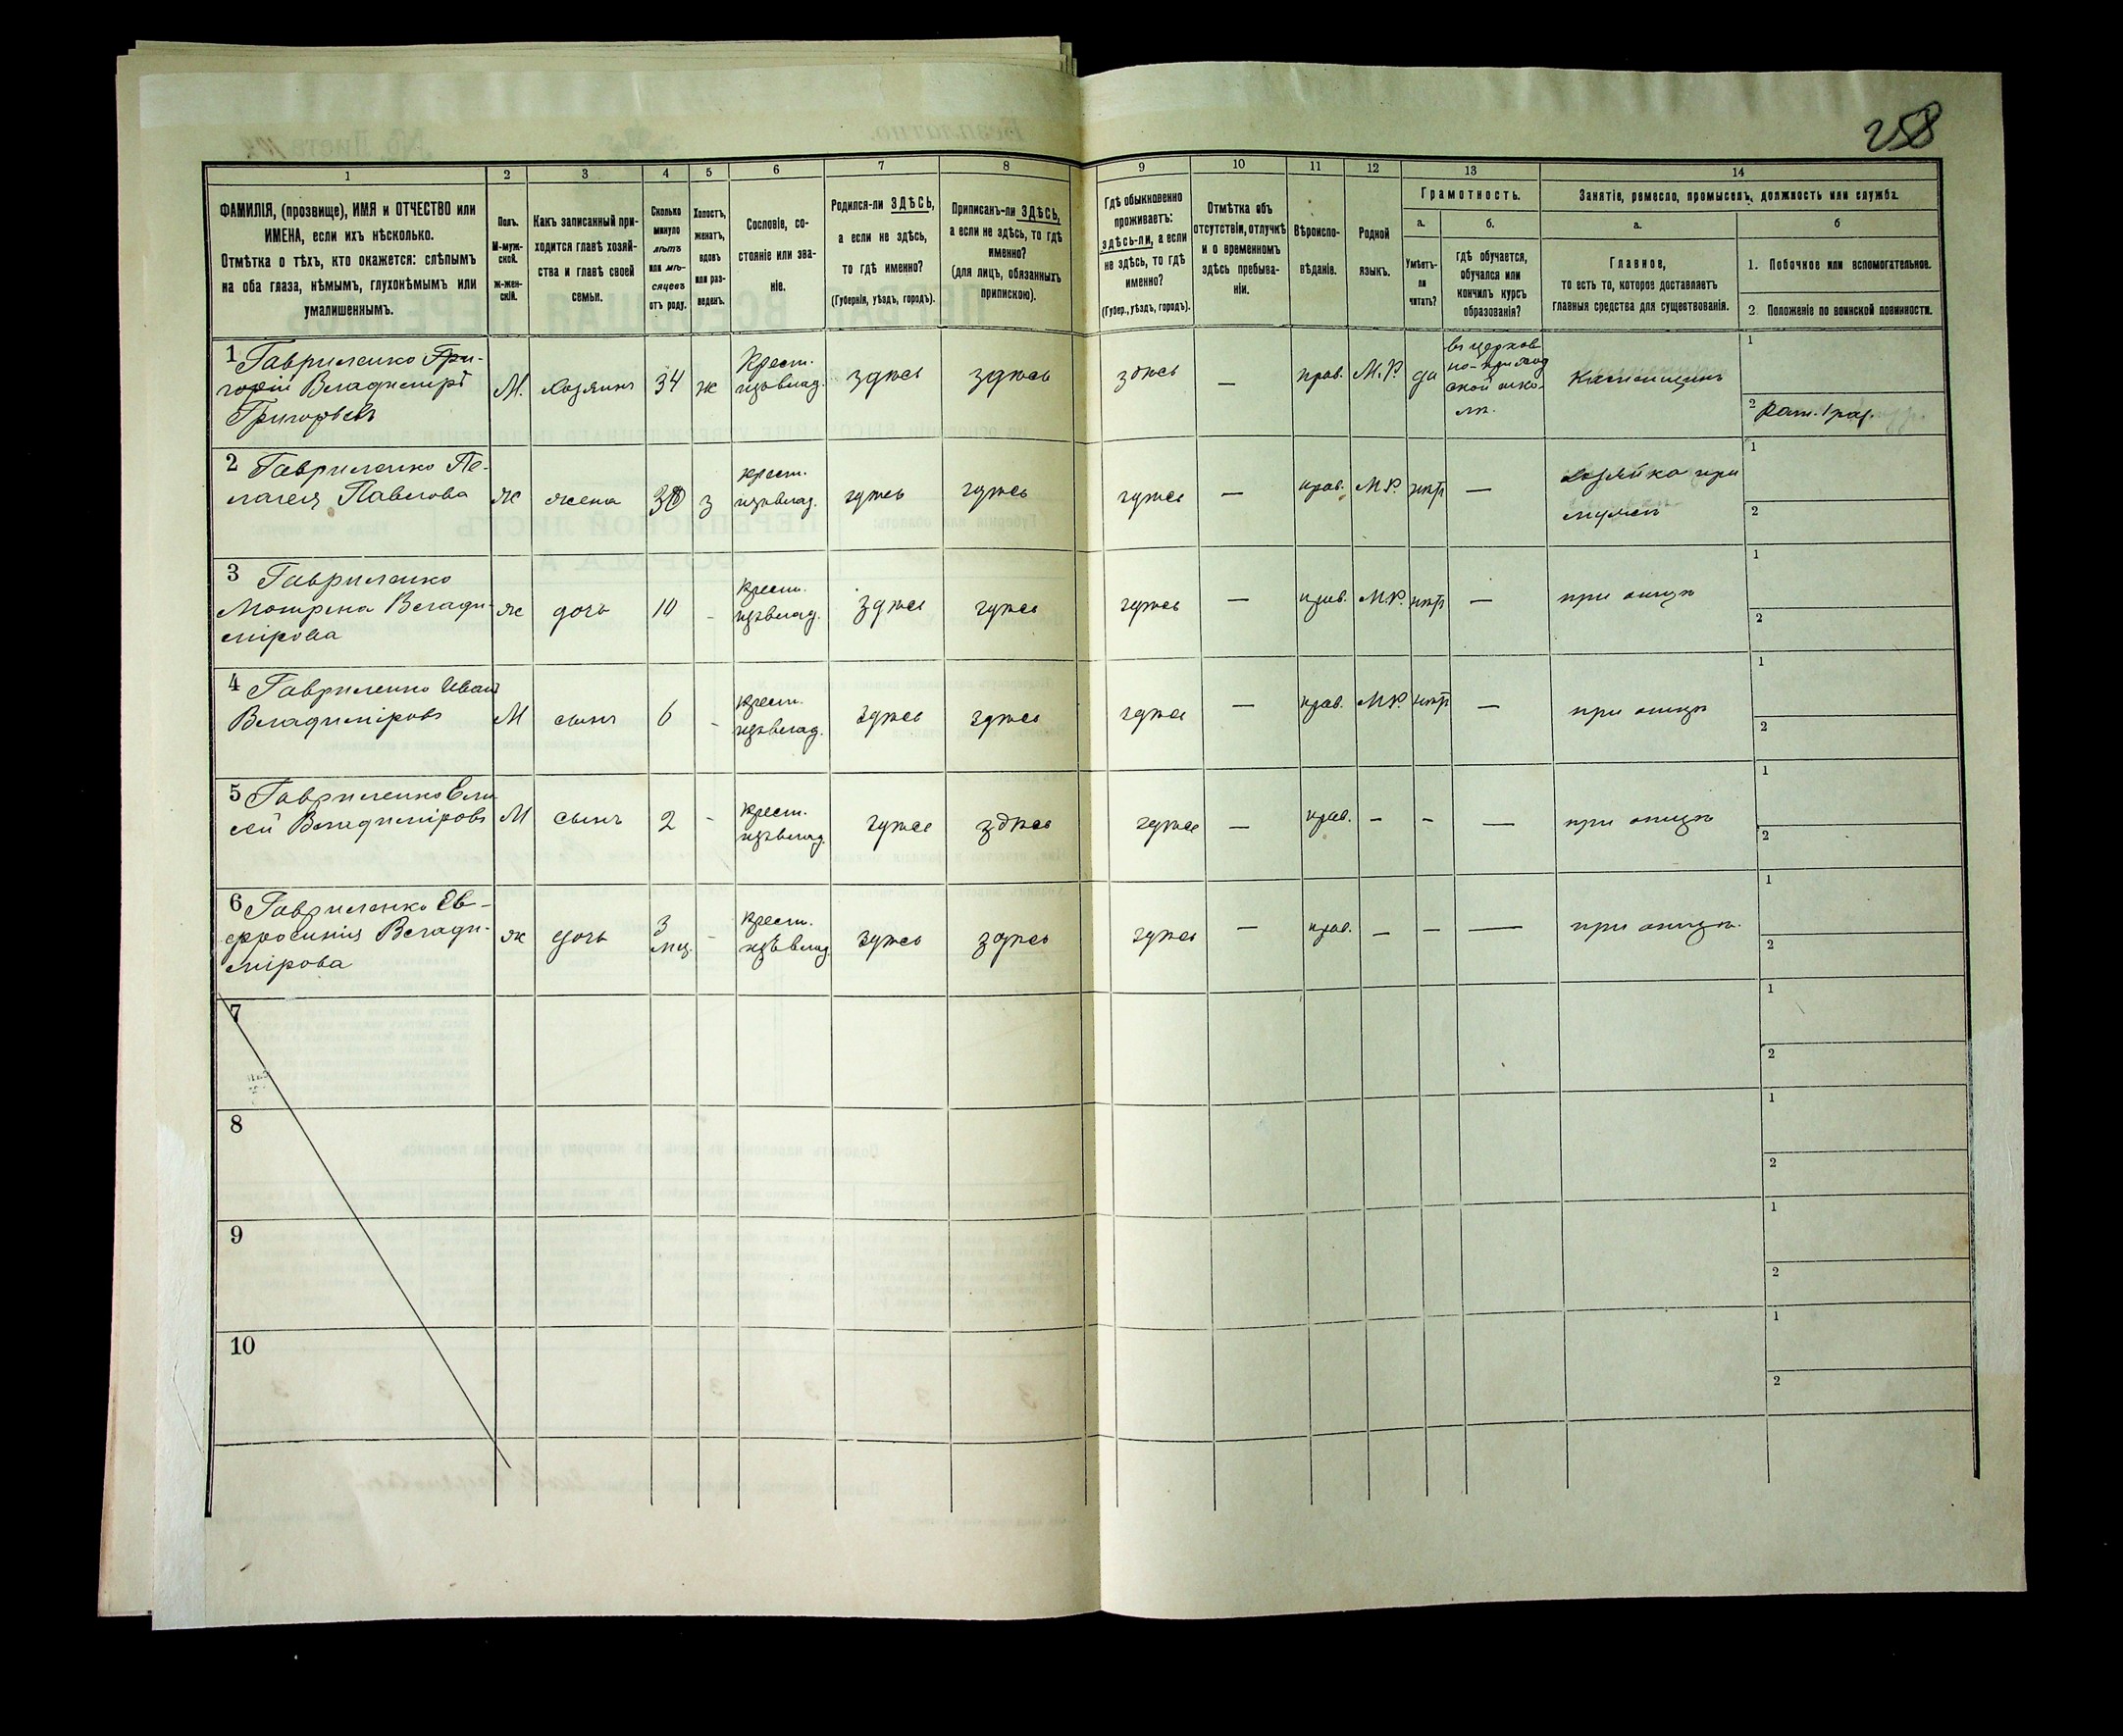 258
1
2
3
4
5
6
7
8
9
10
11
12
13
14
ФАМИЛІЯ, (прозвище), ИМЯ и ОТЧЕСТВО или
ИМЕНА, если ихъ нѣсколько.
Отмѣтка о тѣхъ, кто окажется: слѣпымъ
на оба глаза, нѣмымъ, глухонѣмымъ или
умалишеннымъ.
Полъ.
М-муж-
ской.
ж-жен-
скій.
Какъ записанный при-
ходится главѣ хозяй-
ства и главѣ своей
семьи.
Сколько
минуло
лѣтъ
или мѣ-
сяцевъ
отъ роду.
Холостъ,
женатъ,
вдовъ
или раз-
веденъ.
Сословіе, со-
стояніе или зва-
ніе.
Родился-ли ЗДѢСЬ,
а если не здѣсь,
то гдѣ именно?
(Губернія, уѣздъ, городъ).
Приписанъ-ли ЗДѢСЬ,
а если не здѣсь, то гдѣ
именно?
(для лицъ, обязанныхъ
припискою).
Гдѣ обыкновенно
проживаетъ:
здѣсь-ли, а если
не здѣсь, то гдѣ
именно?
(Губер., уѣздъ, городъ).
Отмѣтка объ
отсутствіи, отлучкѣ
и о временномъ
здѣсь пребыва-
ніи.
Вѣроиспо-
вѣданіе.
Родной
языкъ.
Грамотность.
а.
Умѣетъ-
ли
читать?
б.
гдѣ обучается,
обучался или
кончилъ курсъ
образованія?
Занятіе, ремесло, промыселъ, должность или служба.
а.
Главное,
то есть то, которое доставляетъ
главныя средства для существованія.
б
1. Побочное или вспомогательное.
2. Положеніе по воинской повинности.
1 Гавриленко Гри-
горій Владиміръ
Григорьевъ
М.
хозяинъ
34
ж
Крест.
изъ влад.
здѣсь
здѣсь
здѣсь
—
прав.
М.Р.
да
въ церков
но-приход
ской шко-
лѣ.
Каменщикъ
1
2 Рат. 1 раз.
2 Гавриленко Пе-
лагея Павлова
ж
жена
30
з
крест.
изъ влад.
здѣсь
здѣсь
здѣсь
—
прав.
М.Р.
нѣтъ
—
хозяйка при
мужѣ
1
2
3 Гавриленко
Мотрена Влади-
мірова
ж
дочь
10
-
крест.
изъ влад.
здѣсь
здѣсь
здѣсь
—
прав.
М.Р.
нѣтъ
—
при отцѣ
1
2
4 Гавриленко Иванъ
Владиміровъ
М
сынъ
6
-
крест.
изъ влад.
здѣсь
здѣсь
здѣсь
—
прав.
М.Р.
нѣтъ
—
при отцѣ
1
2
5 Гавриленко Ели
сей Владиміровъ
М
сынъ
2
-
крест.
изъ влад.
здѣсь
здѣсь
здѣсь
—
прав.
-
-
—
при отцѣ
1
2
6 Гавриленко Ев-
фросинія Влади-
мірова
ж
дочь
3
мц.
-
крест.
изъ влад.
здѣсь
здѣсь
здѣсь
—
прав.
—
-
—
при отцѣ.
1
2
7
1
2
8
1
2
9
1
2
10
1
2